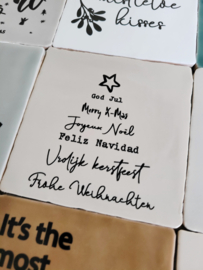 mistletoe
kisses
God Jul
Merry X-Mas
Joyeux Noël
Feliz Navidad
Vrolijk kerstfeest
Frohe Weihnachten
It's the
most